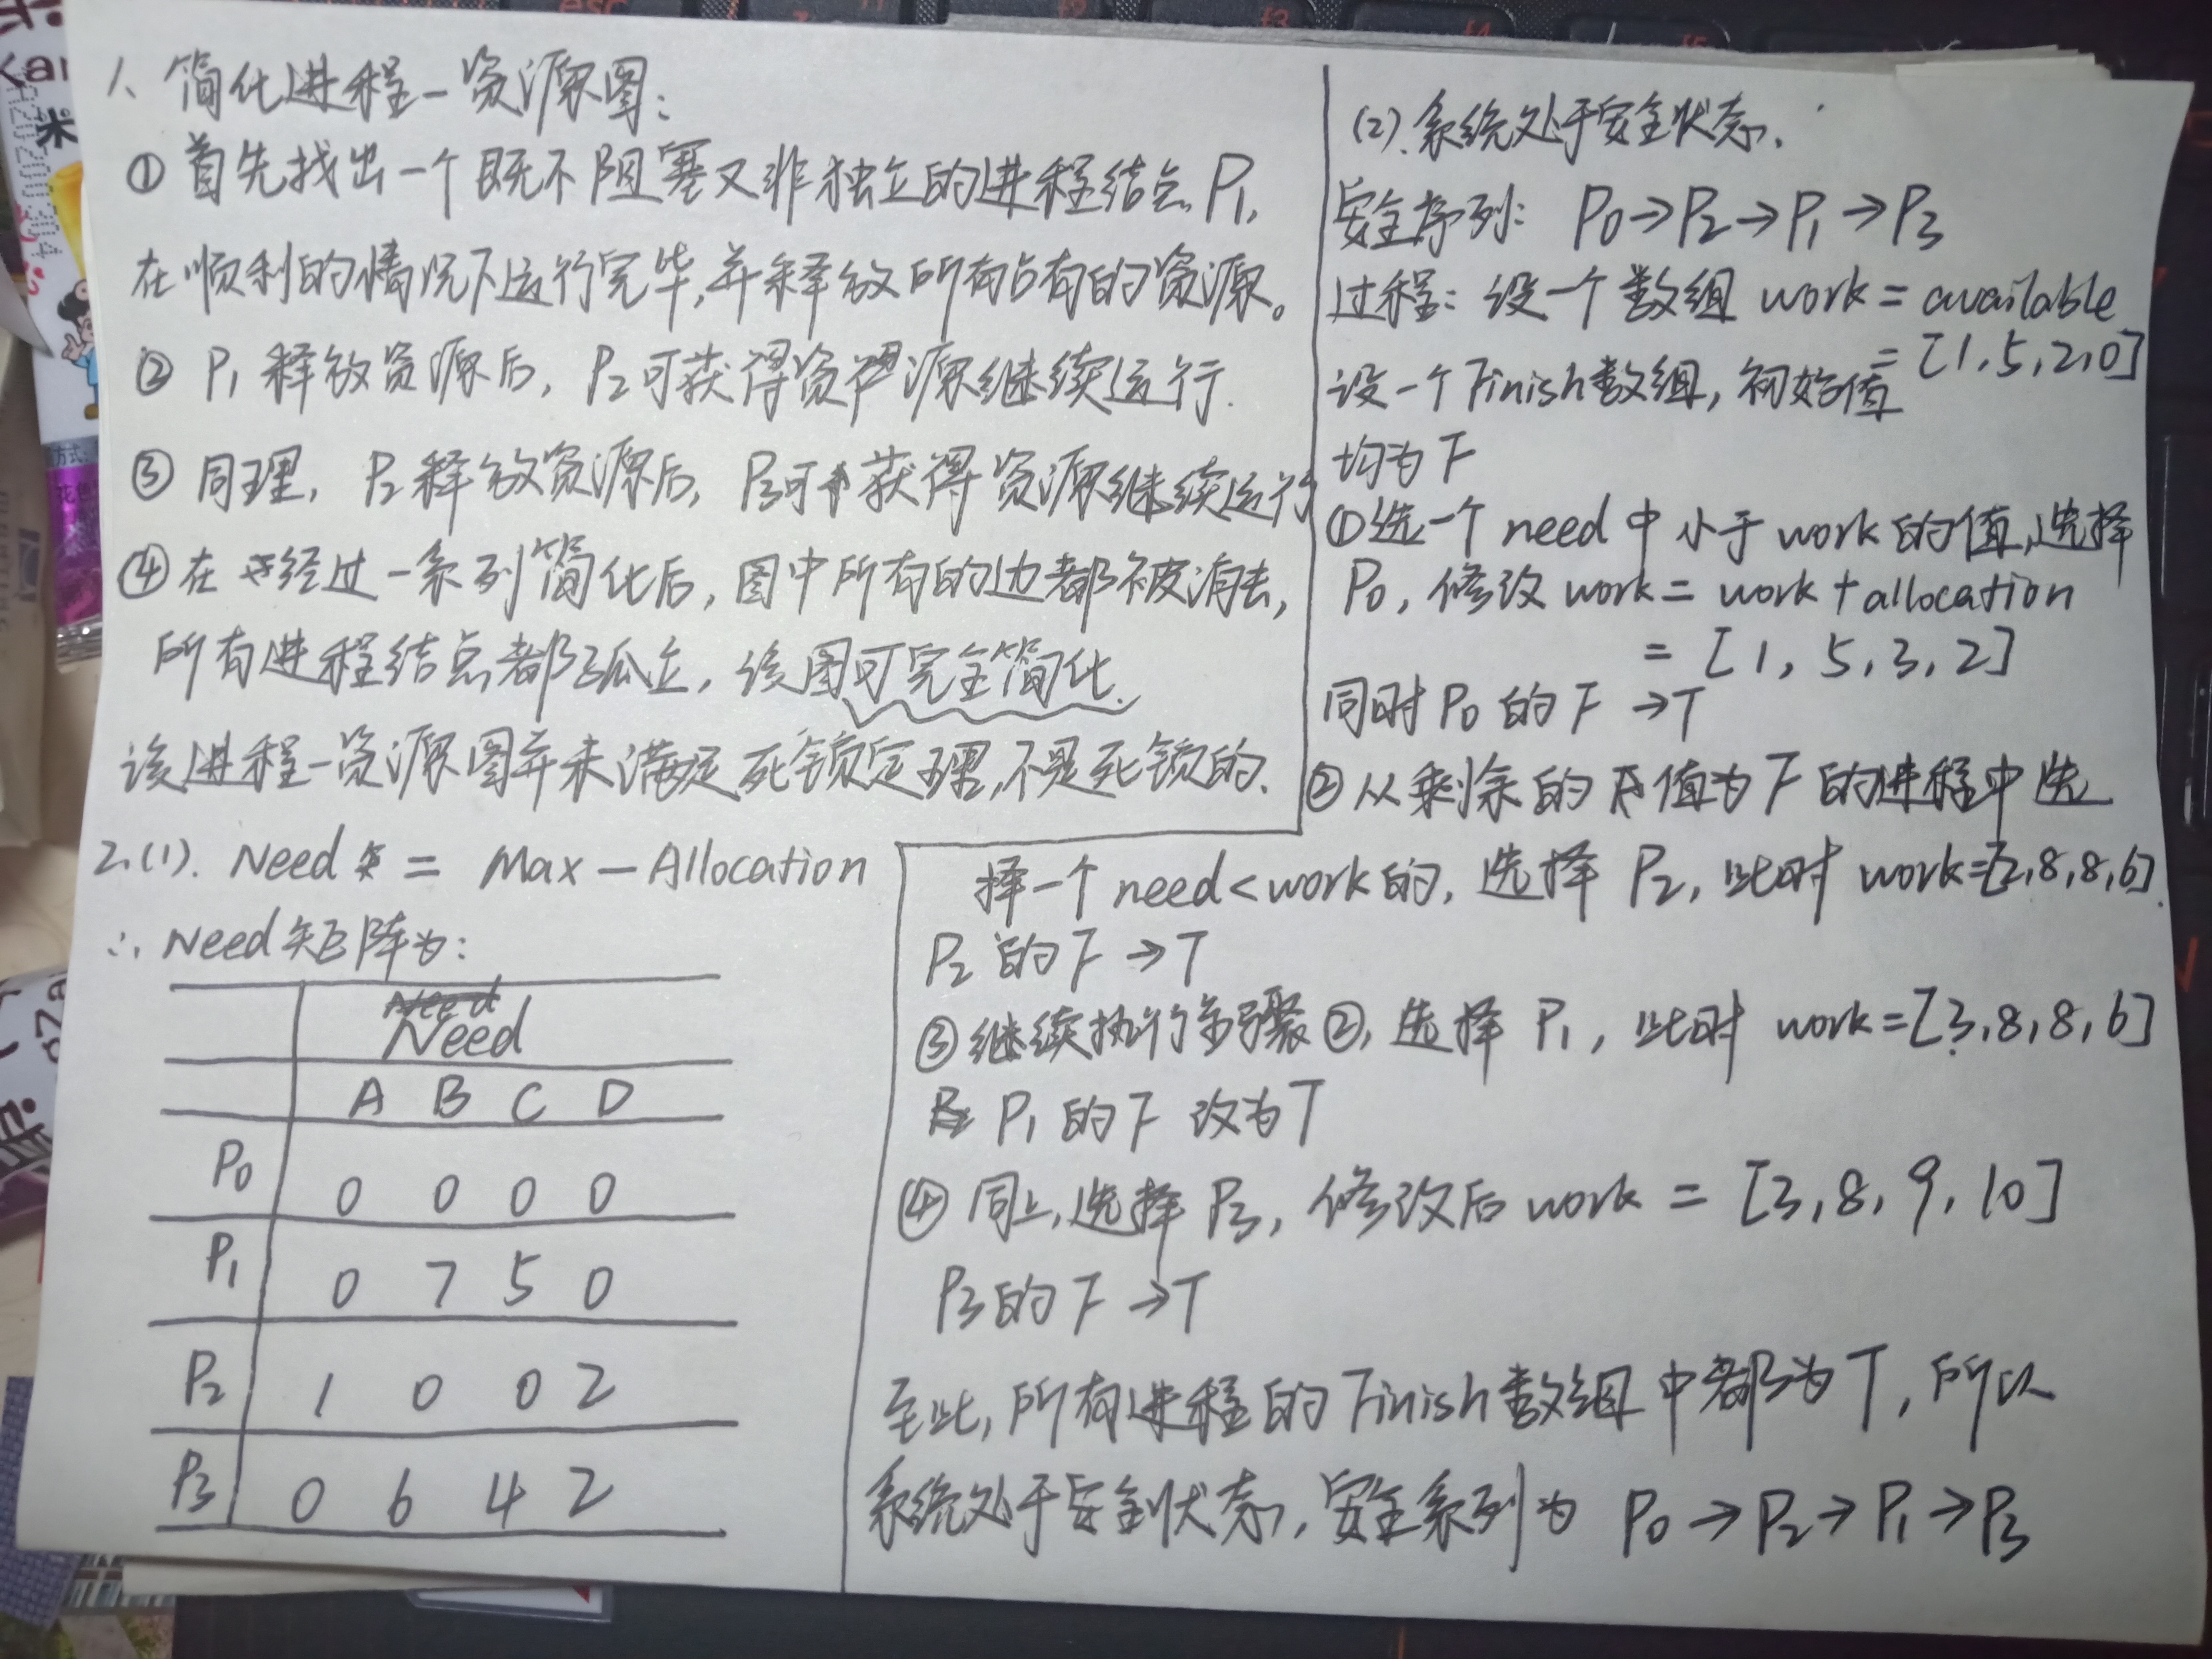 1、简化进程—资源图：
① 首先找出一个既不阻塞又非独立的进程结点P₁,
在顺利的情况下运行完毕,并释放所有占有的资源。
② P₁释放资源后, P₂可获得资源继续运行.
③ 同理, P₂释放资源后, P₃可获得资源继续运行
④ 在经过一系列简化后,图中所有的边都被消去,
所有进程结点都孤立, 该图可完全简化.
该进程—资源图并未满足死锁定理,不是死锁的.
2.(1). Need = Max — Allocation
∴ Need矩阵为:
Need
A B C D
P₀ 0 0 0 0
P₁ 0 7 5 0
P₂ 1 0 0 2
P₃ 0 6 4 2
(2).系统处于安全状态.
安全序列: P₀→P₂→P₁→P₃
过程: 设一个数组 work = available
= [1,5,2,0]
设一个Finish数组, 初始值
均为F
①选一个need中小于work的值,选择
P₀, 修改 work = work + allocation
= [1, 5, 3, 2]
同时P₀的F→T
②从剩余的值为F的进程中选
择一个need<work的, 选择 P₂, 此时 work=[2,8,8,6].
P₂的F→T
③继续执行步骤②, 选择 P₁, 此时 work=[3,8,8,6]
P₁的F改为T
④ 同上,选择P₃, 修改后work = [3,8,9,10]
P₃的F→T
至此,所有进程的Finish数组中都为T,所以
系统处于安全状态,安全系列为 P₀→P₂→P₁→P₃